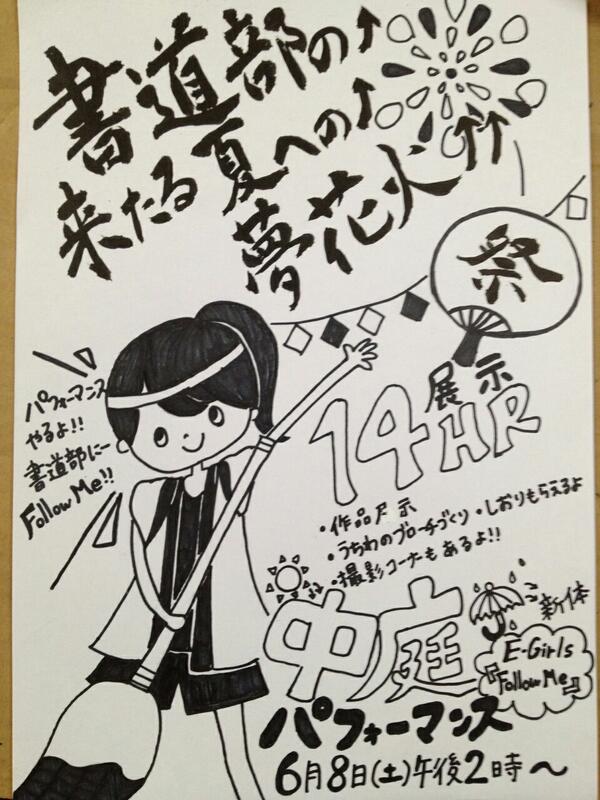 書道部の↑
来たる夏への↑
夢花火↑↑
祭
パフォーマンス
やるよ!!
書道部にー
Follow Me!!
展示
14HR
・作品展示
・うちわのブローチづくり・しおりもらえるよ
・撮影コーナーもあるよ!!
中庭
新体
E-Girls
『Follow Me』
パフォーマンス
6月8日(土)午後2時〜